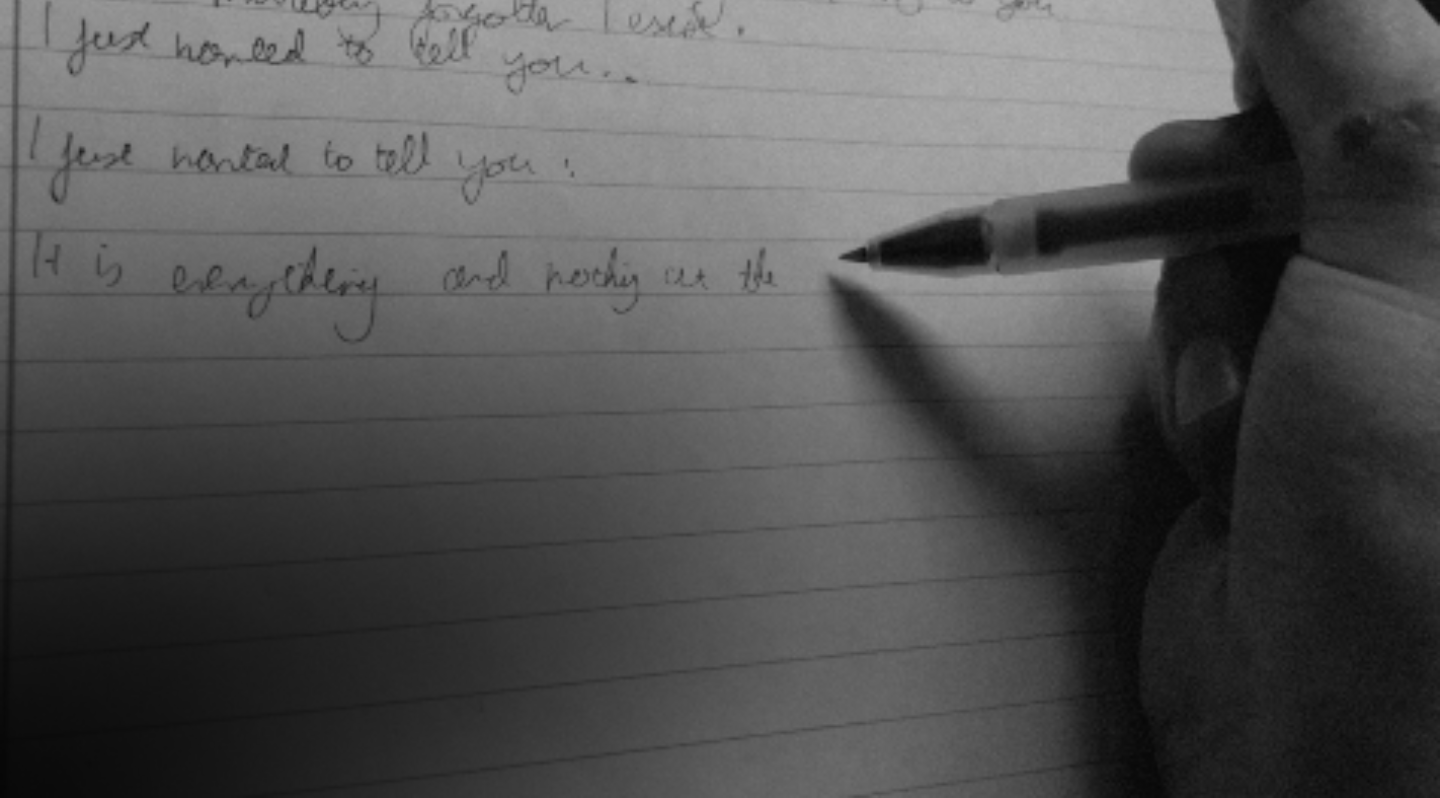 forgotten I exist. to you
I just wanted to tell you..
I just wanted to tell you :
It is everything and nothing at the